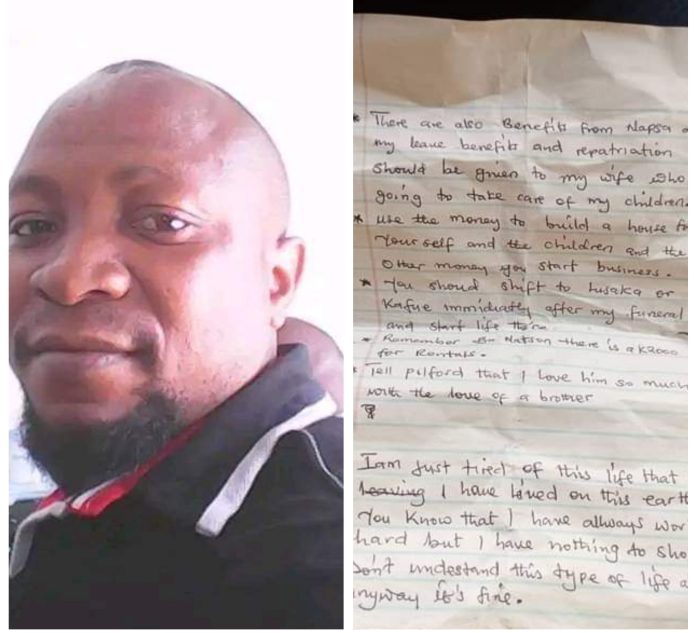 * There are also Benefits from Napsa
my leave benefits and repatriation
should be given to my wife who
going to take care of my children.
* use the money to build a house
Yourself and the children and the
Other money you start business.
* You shoud shift to Lusaka or
Kafue immidiatly after my funeral
and start life there
* Remember Ba Watson there is a K2000
for Rentals.
Tell pilford that I love him so much
with the love of a brother
I am just tired of this life that
leaving I have lived on this earth
You Know that I have allways wor
hard but I have nothing to sho
Don't undestand this type of life a
anyway it's fine.